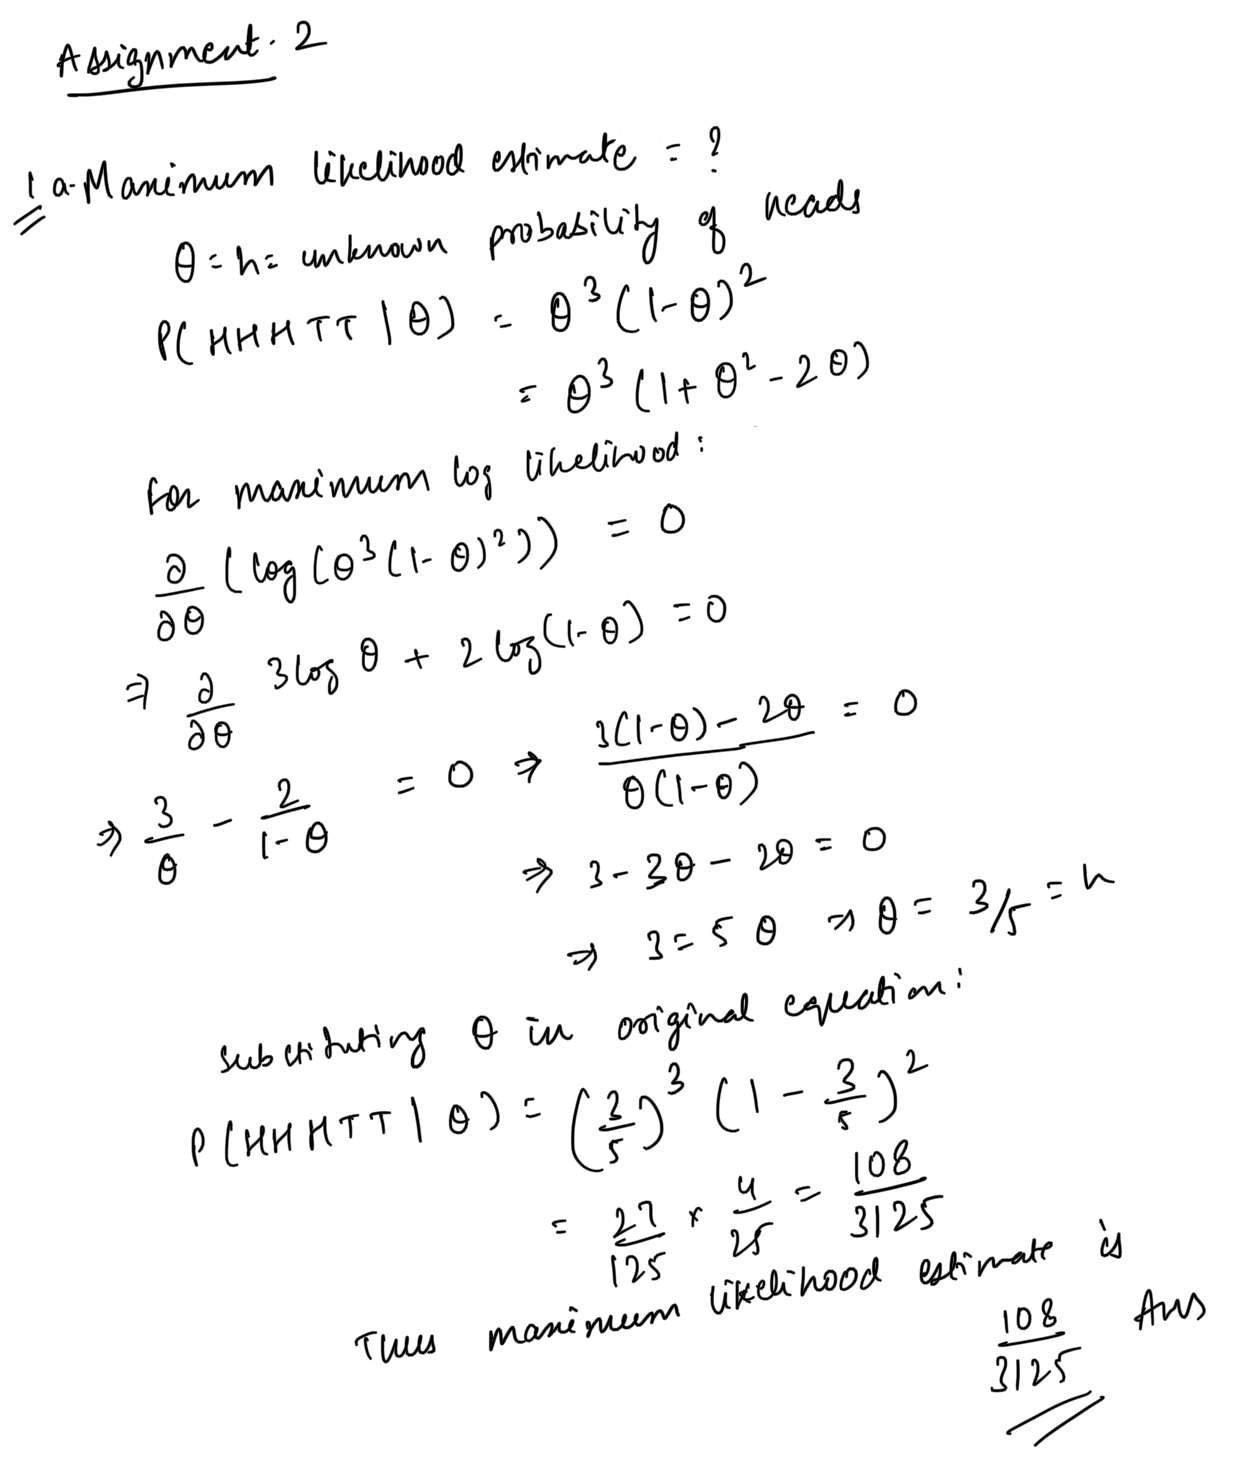 Assignment. 2
1 a. Maximum likelihood estimate = ?
θ = h = unknown probability of heads
P( HHHTT | θ) = θ³ (1-θ)²
= θ³ (1+ θ² - 2θ)
for maximum log likelihood:
∂/∂θ ( log (θ³ (1-θ)²)) = 0
⇒ ∂/∂θ 3 log θ + 2 log(1-θ) = 0
⇒ 3/θ - 2/(1-θ) = 0 ⇒ (3(1-θ) - 2θ)/(θ(1-θ)) = 0
⇒ 3 - 3θ - 2θ = 0
⇒ 3 = 5 θ ⇒ θ = 3/5 = h
substituting θ in original equation:
P (HHHTT | θ) = (3/5)³ (1 - 3/5)²
= 27/125 × 4/25 = 108/3125
Thus maximum likelihood estimate is
108/3125 Ans